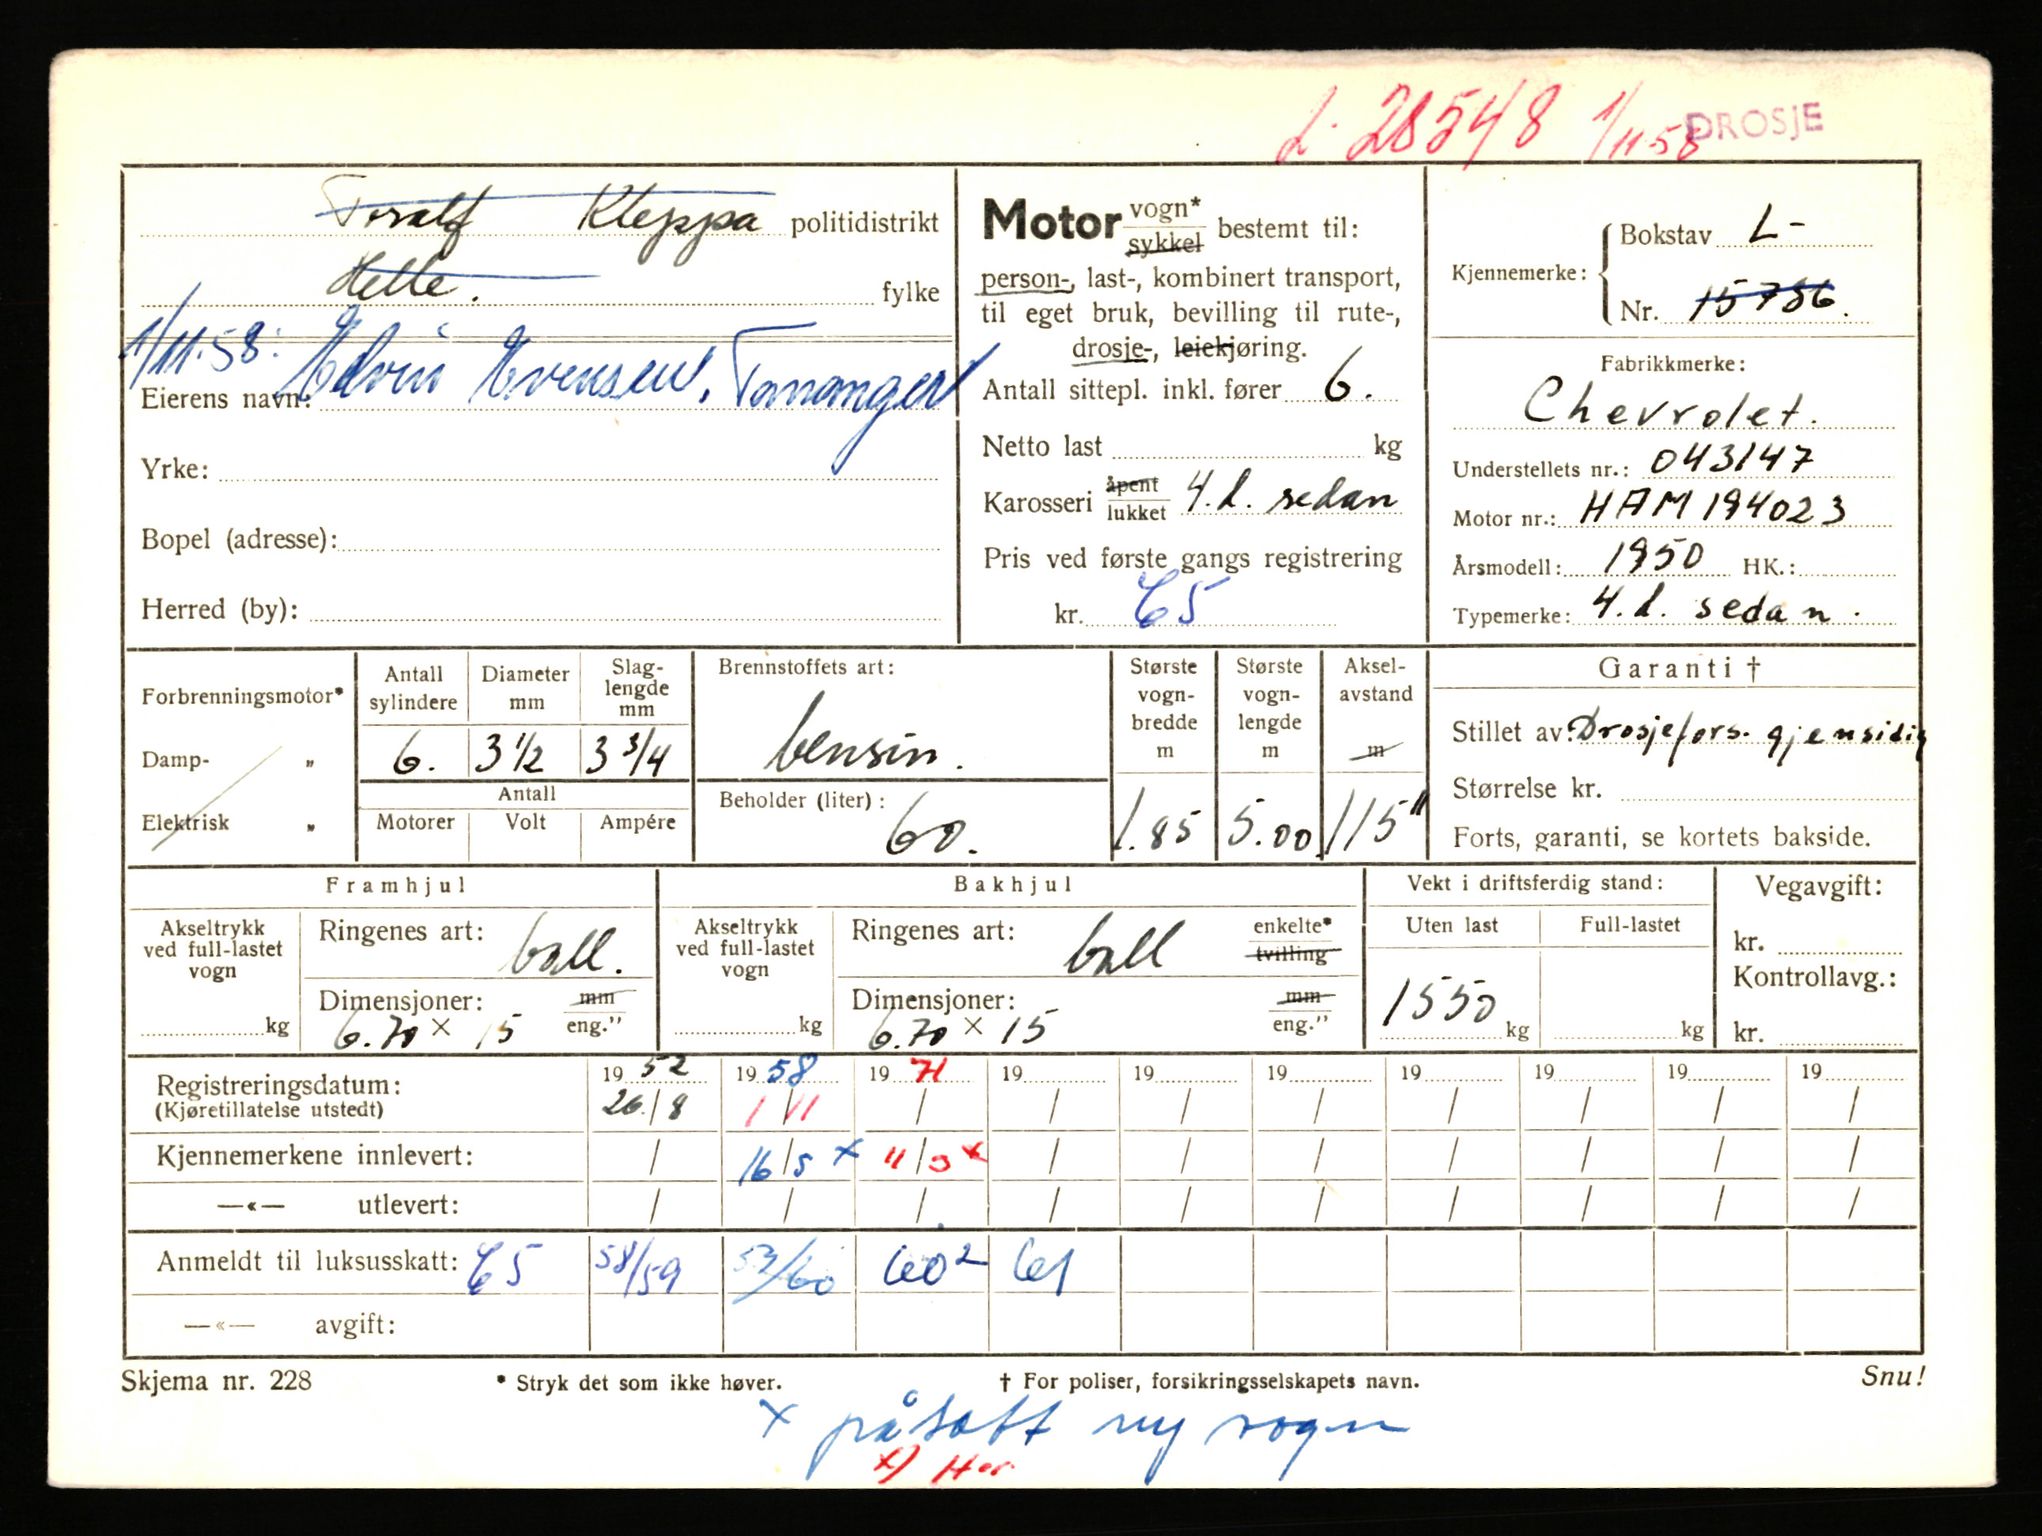 L. 28548 1/11-58 DROSJE
Toralf Kleppa politidistrikt
Helle. fylke
1/11.58: Edvin Evensen, Tananger
Eierens navn:
Yrke:
Bopel (adresse):
Herred (by):
Motor vogn* sykkel bestemt til:
person-, last-, kombinert transport,
til eget bruk, bevilling til rute-,
drosje-, leiekjøring.
Antall sittepl. inkl. fører 6.
Netto last kg
Karosseri åpent lukket 4.d. sedan
Pris ved første gangs registrering
kr.
Kjennemerke: Bokstav L-
Nr. 15786.
Fabrikkmerke:
Chevrolet.
Understellets nr.: 043147
Motor nr.: HAM 194023
Årsmodell: 1950 HK.:
Typemerke: 4.d. sedan.
Forbrenningsmotor*
Damp- „
Elektrisk „
Antall sylindere 6.
Diameter mm 3 1/2
Slag-lengde mm 3 3/4
Antall
Motorer Volt Ampére
Brennstoffets art:
bensin.
Beholder (liter):
60.
Største vogn-bredde m 1.85
Største vogn-lengde m 5.00
Aksel-avstand m 115"
Garanti †
Stillet av: Drosjefors. gjensidig
Størrelse kr.
Forts, garanti, se kortets bakside.
Framhjul
Akseltrykk ved full-lastet vogn
kg
Ringenes art: ball.
Dimensjoner: mm
6.70 × 15 eng."
Bakhjul
Akseltrykk ved full-lastet vogn
kg
Ringenes art: ball enkelte* tvilling
Dimensjoner: mm
6.70 × 15 eng."
Vekt i driftsferdig stand:
Uten last Full-lastet
1550 kg kg
Vegavgift:
kr.
Kontrollavg.:
kr.
Registreringsdatum: 19 52 19 58 19 71 19 19 19 19 19 19 19
(Kjøretillatelse utstedt) 26./8 1/11 / / / / / / / /
Kjennemerkene innlevert: / 16/5 x 11/3 x / / / / / / /
—«— utlevert: / / / / / / / / / /
Anmeldt til luksusskatt: 58/59 /60 60² 61
—«— avgift:
Skjema nr. 228 * Stryk det som ikke høver. † For poliser, forsikringsselskapets navn. Snu!
x påsatt ny vogn
x)